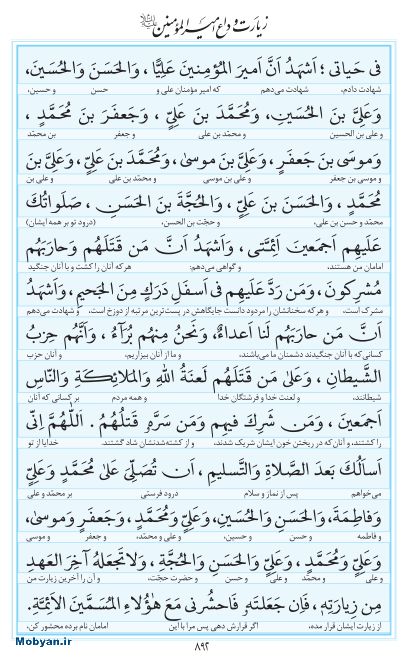 زیارت وداع امیر المؤمنین علیه السلام
فی حَیاتی ؛ اَشهَدُ اَنَّ اَمیرَ المُؤمِنینَ عَلِیًّا ، وَالحَسَنَ وَالحُسَینَ،
شهادت دادم، شهادت می‌دهم که امیر مؤمنان علی و حسن و حسین،
وَعَلِیَّ بنَ الحُسَینِ، وَمُحَمَّدَ بنَ عَلِیٍّ ، وَجَعفَرَ بنَ مُحَمَّدٍ ،
و علی بن الحسین و محمّد بن علی و جعفر بن محمّد
وَموسَی بنَ جَعفَرٍ، وَعَلِیَّ بنَ موسیٰ، وَمُحَمَّدَ بنَ عَلِیٍّ، وَعَلِیَّ بنَ
و موسی بن جعفر و علی بن موسی و محمّد بن علی و علی بن
مُحَمَّدٍ ، وَالحَسَنَ بنَ عَلِیٍّ، وَالحُجَّةَ بنَ الحَسَنِ ، صَلَواتُكَ
محمّد و حسن بن علی، و حجّت بن الحسن، (درود تو بر همه ایشان)
عَلَیهِم اَجمَعینَ اَئِمَّتی ، وَاَشهَدُ اَنَّ مَن قَتَلَهُم وَحارَبَهُم
امامان من هستند، و گواهی می‌دهم: هرکه آنان را کشت و با آنان جنگید
مُشرِکونَ، وَمَن رَدَّ عَلَیهِم فی اَسفَلِ دَرَكٍ مِنَ الجَحیمِ، وَاَشهَدُ
مشرک است، و هرکه سخنانشان را مردود دانست جایگاهش در پست‌ترین مرتبه از دوزخ است، و شهادت می‌دهم
اَنَّ مَن حارَبَهُم لَنا اَعداءٌ، وَنَحنُ مِنهُم بُرَآءُ ، وَاَنَّهُم حِزبُ
کسانی‌که با آنان جنگیدند دشمنان ما می‌باشند، و ما از آنان بیزاریم، و آنان حزب
الشَّیطانِ ، وَعَلیٰ مَن قَتَلَهُم لَعنَةُ اللّٰهِ وَالمَلائِکَةِ وَالنّاسِ
شیطانند، و لعنت خدا و فرشتگان خدا و همه مردم بر کسانی که آنان
اَجمَعینَ ، وَمَن شَرِكَ فیهِم وَمَن سَرَّهُ قَتلُهُم . اَللّٰهُمَّ اِنّی
را کشتند، و آنان که در ریختن خون ایشان شریک شدند، و از کشته‌شدنشان شاد گشتند. خدایا از تو
اَسأَلُكَ بَعدَ الصَّلاةِ وَالتَّسلیمِ ، اَن تُصَلِّیَ عَلیٰ مُحَمَّدٍ وَعَلِیٍّ
می‌خواهم پس از نماز و سلام درود فرستی بر محمّد و علی
وَفاطِمَةَ، وَالحَسَنِ وَالحُسَینِ، وَعَلِیٍّ وَمُحَمَّدٍ، وَجَعفَرٍ وَموسیٰ،
و فاطمه و حسن و حسین و علی و محمّد، و جعفر و موسی
وَعَلِیٍّ وَمُحَمَّدٍ، وَعَلِیٍّ وَالحَسَنِ وَالحُجَّةِ ، وَلاتَجعَلهُ آخِرَ العَهدِ
و علی و محمّد و علی و حسن و حضرت حجّت، و آن را آخرین زیارت من
مِن زِیارَتِهِ، فَاِن جَعَلتَهُ فَاحشُرنی مَعَ هٰؤُلاءِ المُسَمَّینَ الاَئِمَّةِ.
از زیارت ایشان قرار مده، اگر قرارش دهی پس مرا با این امامان نام برده محشور کن.
Mobyan.ir
۸۹۲